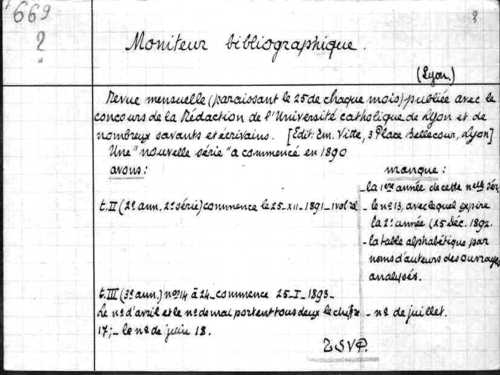 669
?
?
Moniteur bibliographique.
(Lyon)
Revue mensuelle (paraissant le 25 de chaque mois) publiée avec le
concours de la Rédaction de l'Université catholique de Lyon et de
nombreux savants et écrivains. [Édit: Em. Vitte, 3 Place Bellecour, Lyon]
Une "nouvelle série" a commencé en 1890
avons:
manque:
- la 1ère année de cette nelle sér.
t. II (2e ann. 2e série) commence le 25-XII-1891-1 vol rel
- le no 13, avec lequel expire
la 2e année (25 Déc. 1892.
- la table alphabétique par
noms d'auteurs des ouvrages
analysés.
t. III (3e ann.) nos 14 à 24 - commence 25-I-1893-
Le no d'avril et le no de mai portent tous deux le chiffre
- no de juillet.
17; - le no de juin 18.
TSVP.